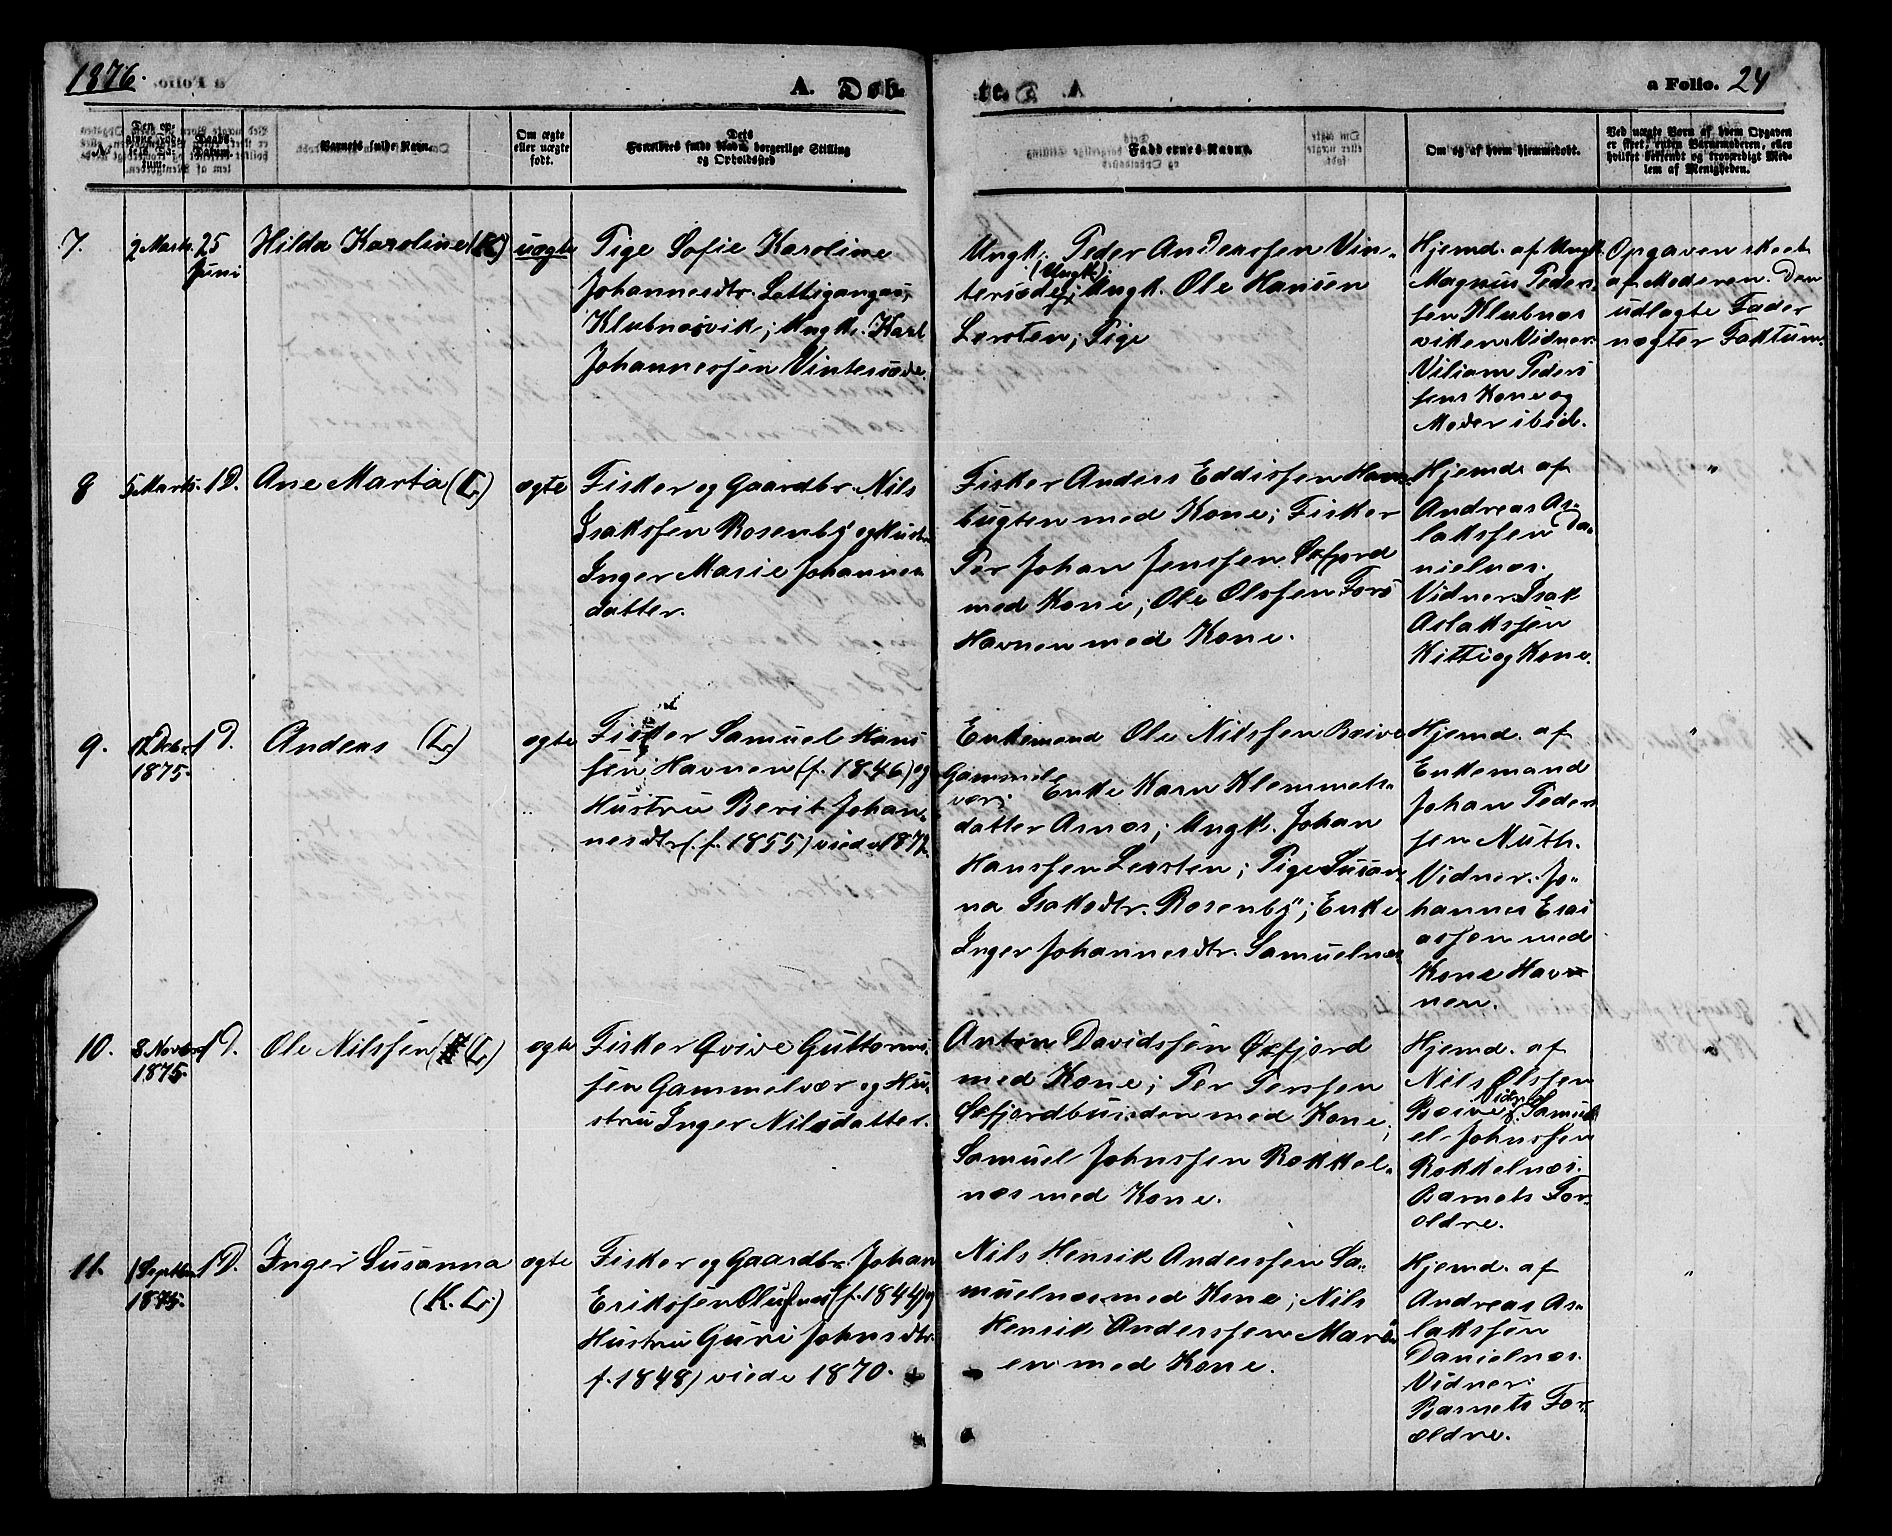 1876.
A. Døb-
te.
a Folio. 24
No.
Den op-
givne Fød-
sels Da-
tum.
Daabs-
Datum.
Barnets fulde Navn.
Om ægte
eller uægte
født.
Forældres fulde Navn, borgerlige Stilling
og Opholdssted
Faddernes Navne.
Om og af hvem hjemmedøbt.
Ved uægte Børn af hvem Opgaven
er skeet, enten Barnemoderen, eller
hvilket bekjendt og troværdigt Med-
lem af Menigheden.
7.
2 Marts.
25
Juni
Hilda Karoline (K)
uægte
Pige Sofie Karoline
Johannesdtr.
Klubnæsvik; Ungk. Karl
Johannessen Vintersæde.
Ungk. Peder Anderssen Vin-
(Ungk)
tersæde; Ungk. Ole Hansen
Lersten; Pige
Hjemd. af Ungk.
Magnus Peder-
sen Klubnæs
viken. Vidner.
Viliam Peder-
sens Kone og
Moder ibid.
Opgaven skeet
af Moderen. Den
udlagte Fader
nægter Faktum.
8
5 Marts.
1 D.
Ane Marta (L)
ægte
Fisker og Gaardbr. Nils
Isaksen Rosenby og Hustru
Inger Marie Johannes-
datter.
Fisker Anders Eddissen Ham-
bugten med Kone; Fisker
Per Johan Jenssen Øxfjord
med Kone; Ole Olsen Fors
Havnen med Kone.
Hjemd. af
Andreas As-
laksen Da-
nielnæs.
Vidner. Isak
Aslaksen
Kitti og Kone.
"
9.
12 Decbr
1875.
1 D.
Andeas (L)
ægte
Fisker Samuel Hans
sen Havnen (f. 1846) og
Hustru Berit Johan-
nesdtr (f. 1855) viede 1872.
Enkemand Ole Nilssen Beive
Gammel
vær;
Enke Karn Klemmets-
datter Asnæs; Ungk. Johan
Hanssen Lersten; Pige Susan-
na Isaksdtr. Rosenby; Enke
Inger Johannesdtr. Samuelnæs
Hjemd. af
Enkemand
Johan Peder
sen Muth.
Vidner. Jo-
hannes Esai
assen med
Kone Hav-
nen.
"
10.
8 Novbr
1875.
1 D.
Ole Nilssen (L)
ægte
Fisker Qvive Guttorms
sen Gammelvær og Hu-
stru Inger Nilsdatter.
Anton Davidsen Øxfjord
med Kone; Per Perssen
Øxfjordbunden med Kone;
Samuel Johnssen Rokkel-
næs med Kone.
Hjemd. af
Nils Olsen
Beive. Vidner. Samu-
el Johnssen
Rokkelnæs.
Barnets For-
ældre.
"
11.
1 Septbr
1875.
1 D.
Inger Susanna
(K. L.)
ægte
Fisker og Gaardbr. Johan
Eriksen Olufnæs (f. 1844) og
Hustru Guri Johnsdtr.
f. 1848) viede 1870.
Nils Henrik Anderssen Sa-
muelnæs med Kone; Nils
Henrik Anderssen Marē
en med Kone.
Hjemd. af
Andreas As-
laksen
Danielnæs.
Vidner:
Barnets For-
ældre.
"